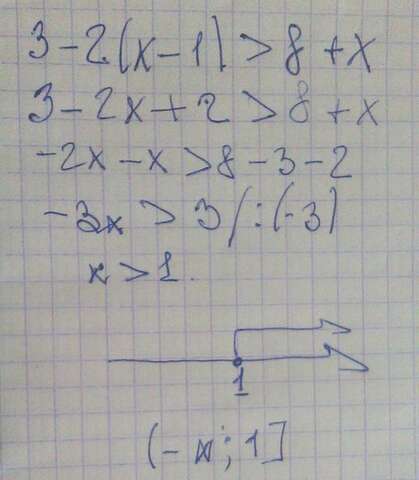 3-2(x-1)>8+x
3-2x+2>8+x
-2x-x>8-3-2
-3x > 3 /:(-3)
x>1.
1
(-∞; 1]